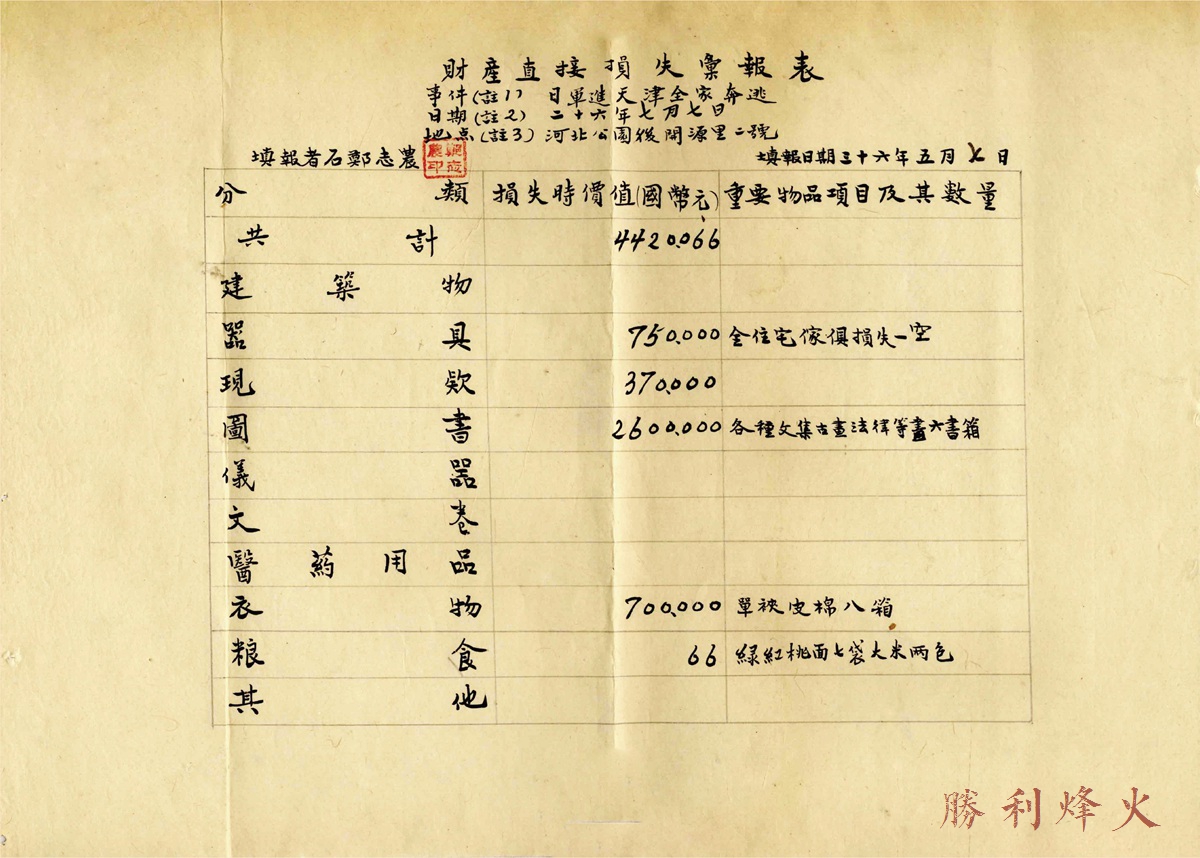 財產直接損失彙報表
事件(註1) 日軍進天津全家奔逃
日期(註2) 二十六年七月七日
地点(註3) 河北公園後開源里二號
填報者石鄭志農 填報日期三十六年五月七日
分類 損失時價值(國幣元) 重要物品項目及其數量
共計 4420.066
建築物
器具 750.000 全住宅傢俱損失一空
現欵 370.000
圖書 2600.000 各種文集古畫法律等畫六書箱
儀器
文卷
醫药用品
衣物 700.000 單裌皮棉八箱
粮食 66 綠紅桃面七袋大米两包
其他
勝利烽火